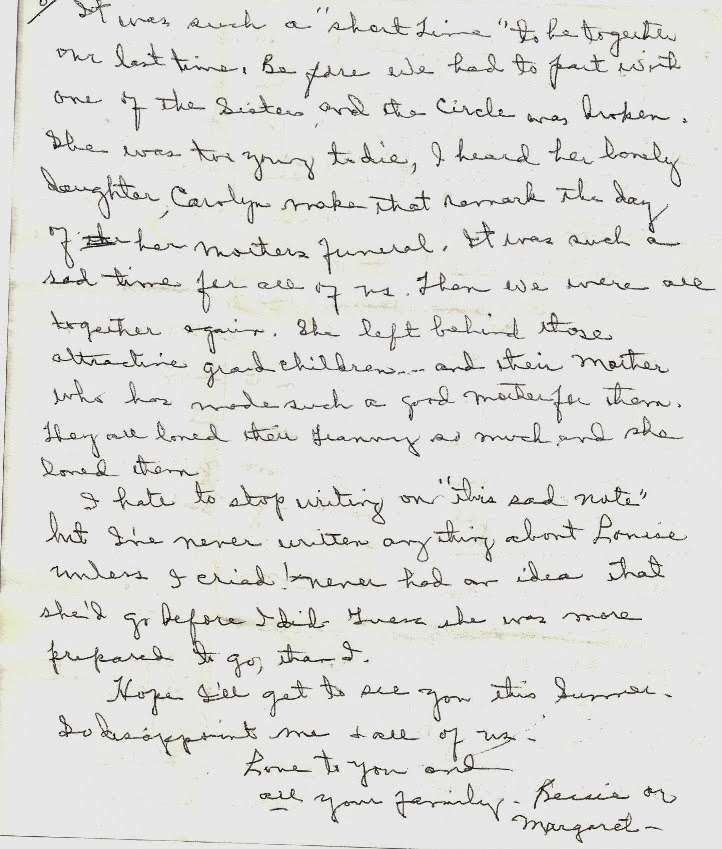 It was such a "short time" to be together
our last time. Before we had to part with
one of the Sisters, and the Circle was broken.
She was too young to die, I heard her lonely
daughter, Carolyn make that remark the day
of her mothers funeral. It was such a
sad time for all of us. Then we were all
together again. She left behind those
attractive grandchildren... and their mother
who has made such a good mother for them.
They all loved their so much and she
loved them
I hate to stop writing on "this sad note"
but I've never written anything about Louise
unless I cried! never had an idea that
she'd go before I did. Guess she was more
prepared to go, than I.
Hope I'll get to see you this Summer.
disappoint me & all of us.
Love to you and
all your family - Bessie or
Margaret -